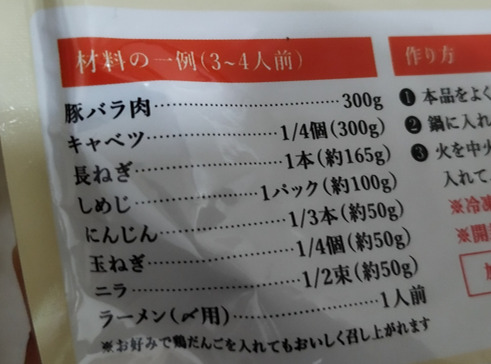 材料の一例(3~4人前)
豚バラ肉……300g
キャベツ……1/4個(300g)
長ねぎ……1本(約165g)
しめじ……1パック(約100g)
にんじん……1/3本(約50g)
玉ねぎ……1/4個(約50g)
ニラ……1/2束(約50g)
ラーメン(〆用)……1人前
※お好みで鶏だんごを入れてもおいしく召し上がれます
作り方
❶ 本品をよく
❷ 鍋に入れ
❸ 火を中火
入れて
※冷凍
※開